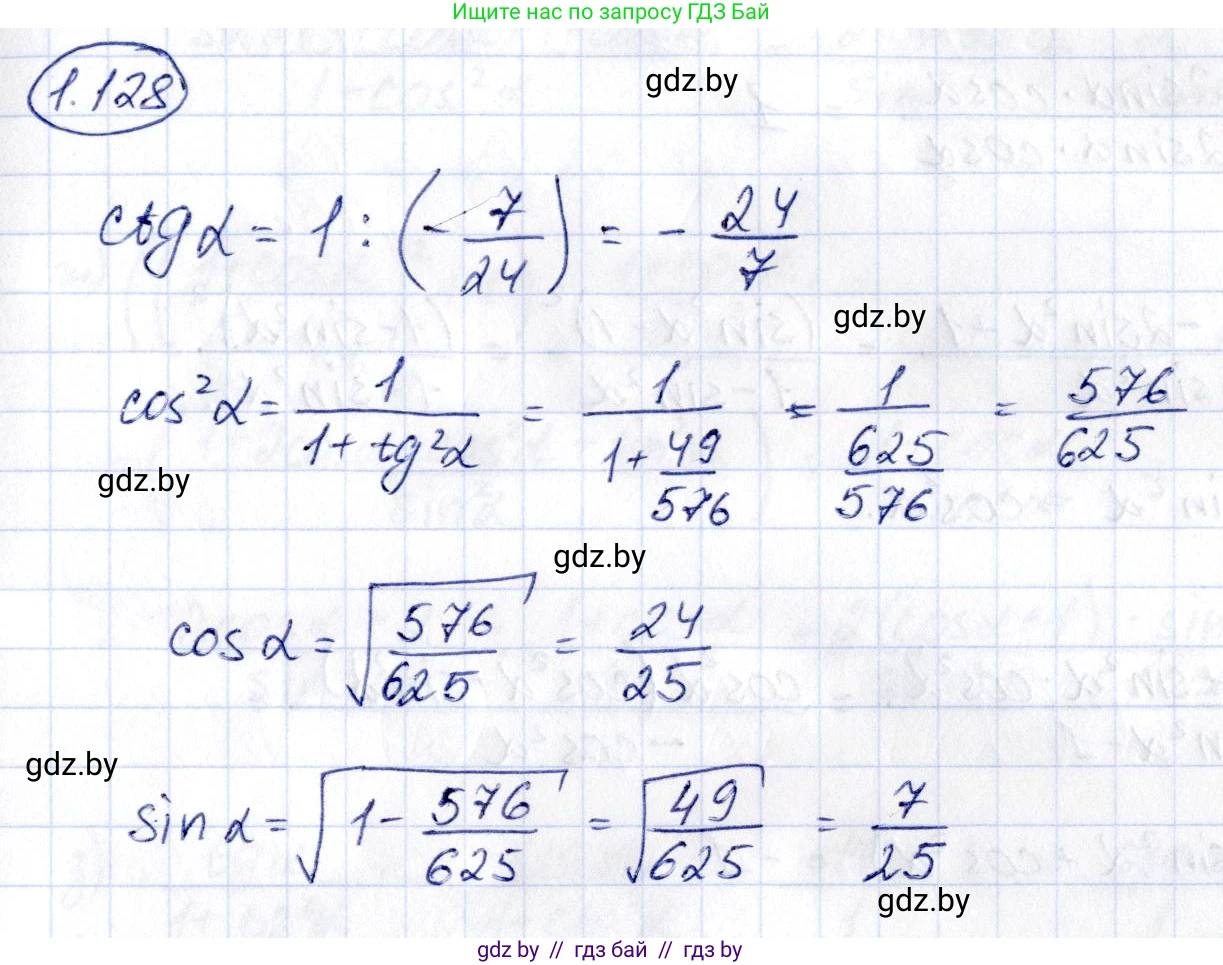 Ищите нас по запросу ГДЗ Бай
1.128
gdz.by
ctg α = 1 : (- 7/24) = - 24/7
gdz.by
cos²α = 1/(1 + tg²α) = 1/(1 + 49/576) = 1/(625/576) = 576/625
gdz.by
gdz.by
cos α = √(576/625) = 24/25
gdz.by
sin α = √(1 - 576/625) = √(49/625) = 7/25
gdz.by
gdz by // гдз бай // гдз by